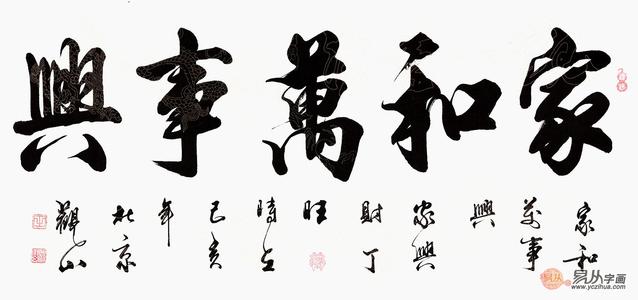 家和萬事興
家和萬事興家興財丁旺時在己亥年北京觀山
易从字画
www.yczihua.com